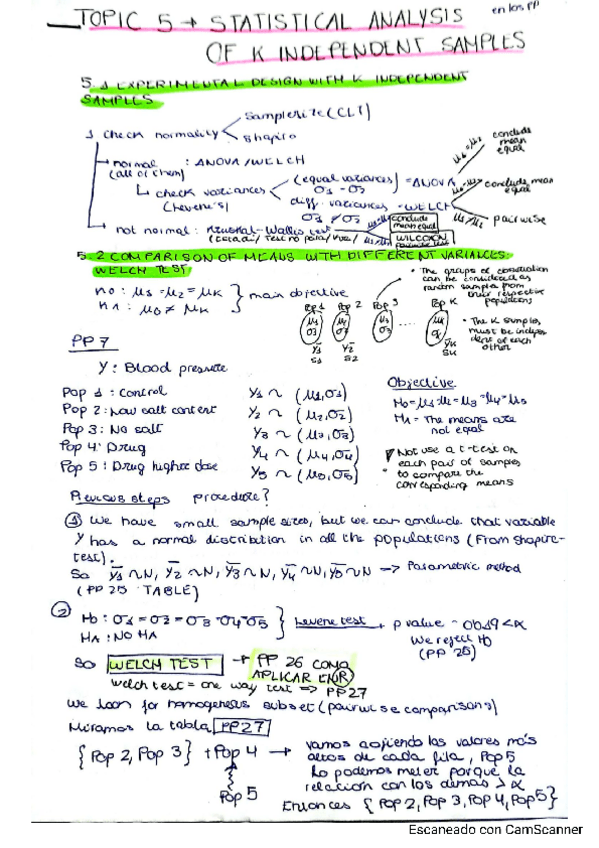 TOPIC 5 → STATISTICAL ANALYSIS en los PP
OF K INDEPENDENT SAMPLES
5.1 EXPERIMENTAL DESIGN WITH K INDEPENDENT
SAMPLES
1 check normality
samplesize (CLT)
Shapiro
normal : ANOVA/WELCH
(all of them)
check variances
(Levene's)
(equal variances) = ANOVA
diff. variances = WELCH
conclude
mean
equal
conclude mean
equal
pairwise
not normal : Kruskal-Wallis test
conclude
mean equal
WILCOXON
5.2 COMPARISON OF MEANS WITH DIFFERENT VARIANCES:
WELCH TEST
main objective
Pop 1 Pop 2 Pop 3 Pop K
• The groups of observation
can be considered as
random samples from
their respective
populations
• The K samples
must be indepen
dent of each
other
PP 7
Y : Blood pressure
Pop 1 : Control Y1 ~ (μ1,σ1)
Pop 2 : Low salt content Y2 ~ (μ2,σ2)
Pop 3 : No salt Y3 ~ (μ3,σ3)
Pop 4 : Drug Y4 ~ (μ4,σ4)
Pop 5 : Drug higher dose Y5 ~ (μ5,σ5)
Objective
HA = The means are
not equal
Not use a t-test on
each pair of samples
to compare the
corresponding means
Previous steps procedure?
① We have small sample sizes, but we can conclude that variable
Y has a normal distribution in all the populations (From shapiro-
test).
So Y̅1~N, Y̅2~N, Y̅3~N, Y̅4~N, Y̅5~N → Parametric method
(PP 25 TABLE)
② H0 : σ1=σ2=σ3=σ4=σ5 } Levene test → p value = 0.049 < α
HA : NO HA
We reject H0
(PP 25)
So WELCH TEST → PP 26 COMO
APLICAR EN R
welch test = one way test => PP27
We look for homogeneus subset (pairwise comparisons)
Miramos la tabla PP27
{Pop 2, Pop 3} + Pop 4 → vamos cogiendo los valores más
altos de cada fila, Pop 5
Pop 5
lo podemos meter porque la
relación con los demas > α
Entonces {Pop 2, Pop 3, Pop 4, Pop 5}
Escaneado con CamScanner